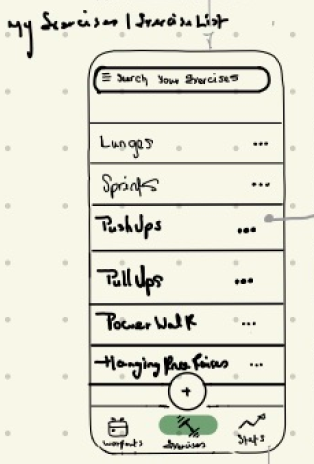 My Exercises | Exercise List
Search Your Exercises
Lunges ...
Sprints ...
PushUps ...
Pull Ups ...
Power Walk ...
Hanging Knee Raises ...
+
Workouts Exercises Stats